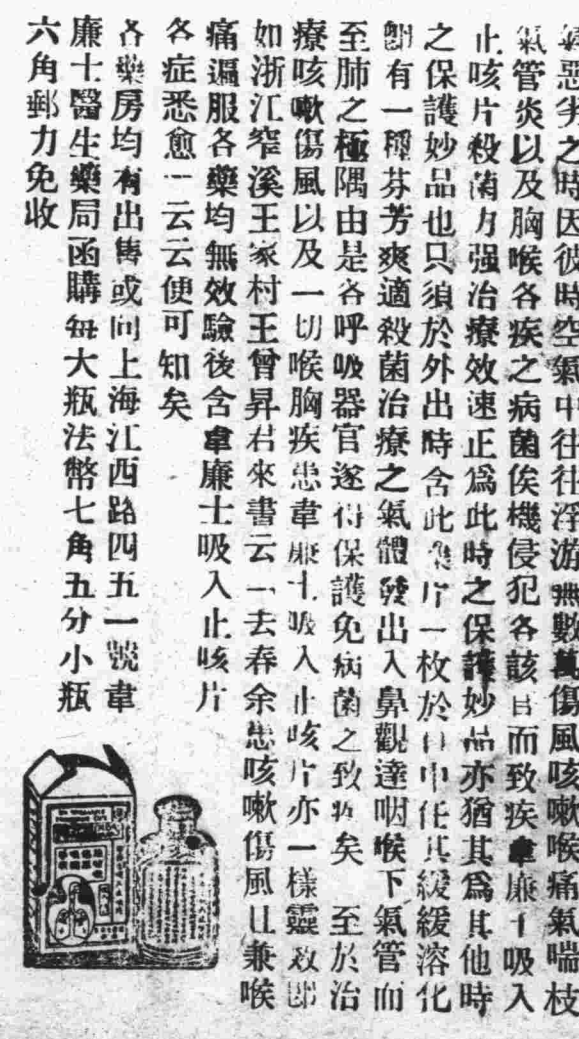 氣惡劣之時因彼時空氣中往往浮游無數萬傷風咳嗽喉痛氣喘枝
氣管炎以及胸喉各疾之病菌俟機侵犯各該官而致疾韋廉士吸入
止咳片殺菌力强治療效速正爲此時之保護妙品亦猶其爲其他時
之保護妙品也只須於外出時含此藥片一枚於口中任其緩緩溶化
卽有一種芬芳爽適殺菌治療之氣體發出入鼻觀達咽喉下氣管而
至肺之極隅由是各呼吸器官遂得保護免病菌之致病矣 至於治
療咳嗽傷風以及一切喉胸疾患韋廉士吸入止咳片亦一樣靈效卽
如浙江窄溪王家村王曾昇君來書云「去春余患咳嗽傷風且兼喉
痛遍服各藥均無效驗後含韋廉士吸入止咳片
各症悉愈」云云便可知矣
各藥房均有出售或向上海江西路四五一號韋
廉士醫生藥局函購每大瓶法幣七角五分小瓶
六角郵力免收